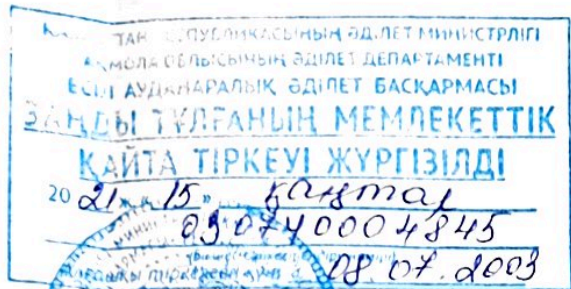 ҚАЗАҚСТАН РЕСПУБЛИКАСЫНЫҢ ӘДІЛЕТ МИНИСТРЛІГІ
АҚМОЛА ОБЛЫСЫНЫҢ ӘДІЛЕТ ДЕПАРТАМЕНТІ
ЕСІЛ АУДАНАРАЛЫҚ ӘДІЛЕТ БАСҚАРМАСЫ
ЗАҢДЫ ТҰЛҒАНЫҢ МЕМЛЕКЕТТІК
ҚАЙТА ТІРКЕУІ ЖҮРГІЗІЛДІ
20 21 ж. « 15 » қаңтар
030740004845
08.07.2003